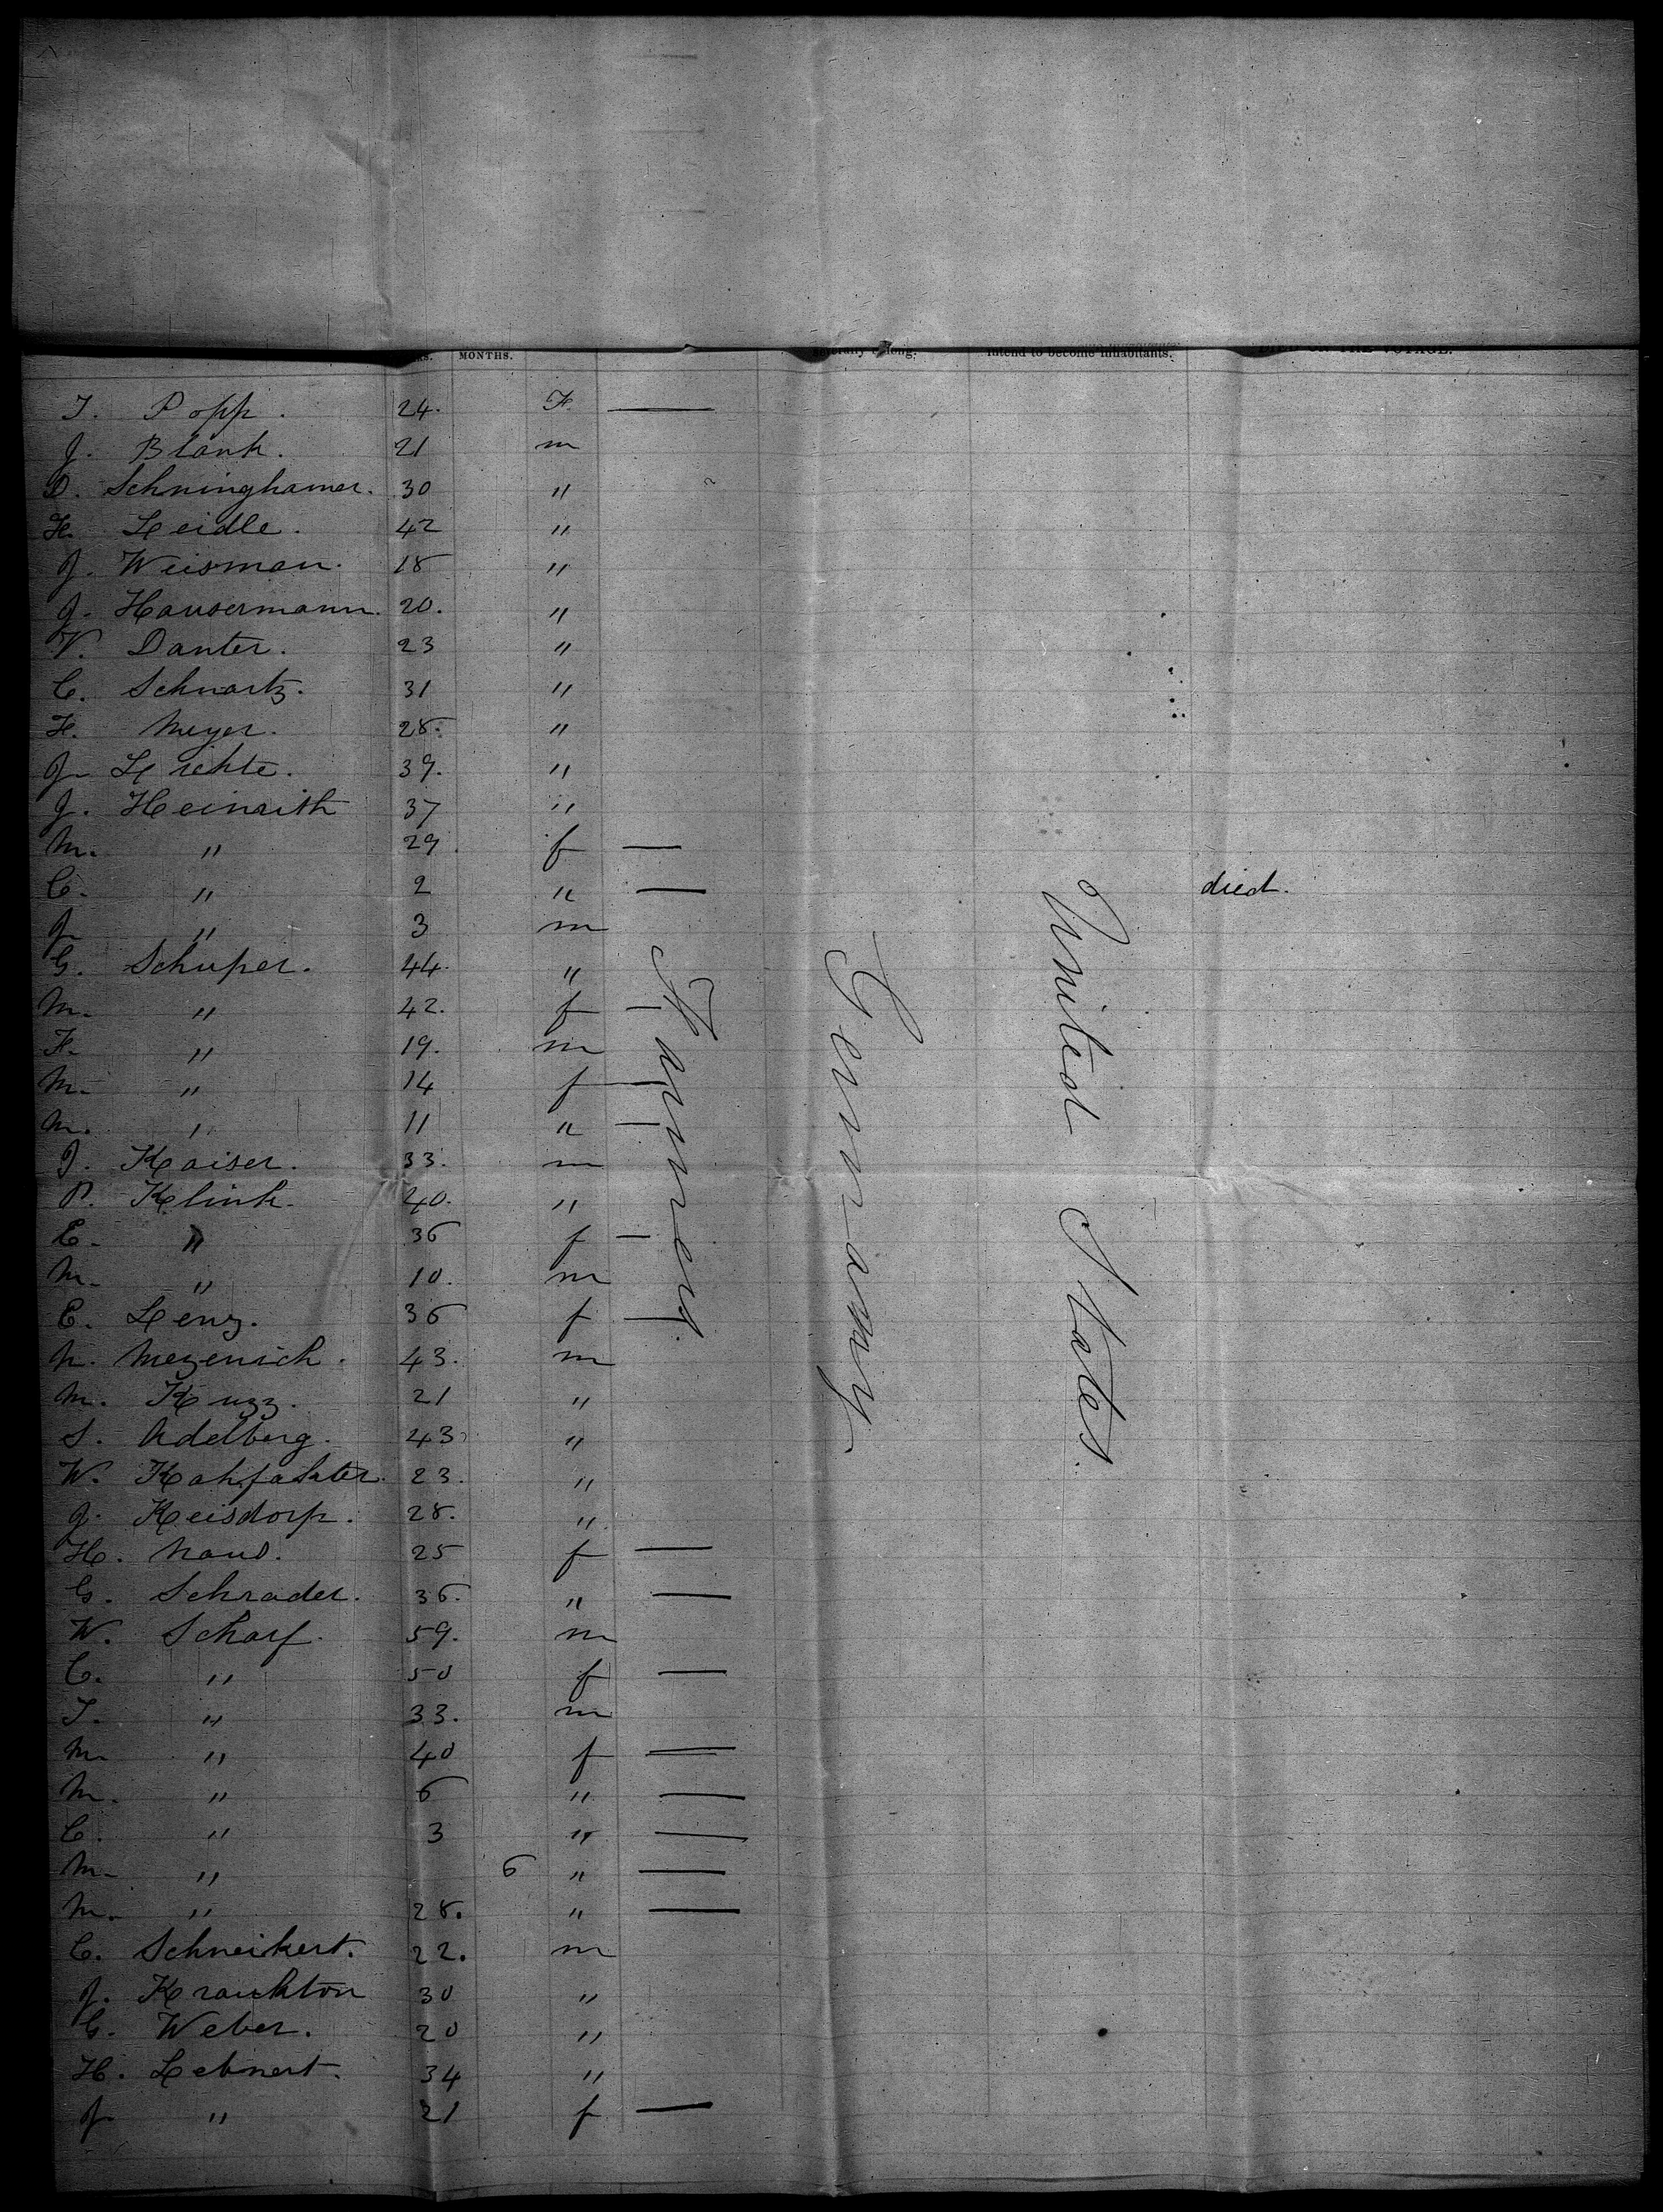 MONTHS. severally belong. intend to become inhabitants. DIED ON THE VOYAGE.
T. Popp. 24. F. —
J. Blank. 21 m
D. Schninghamer. 30 "
F. Leidle. 42 "
J. Weisman. 18 "
J. Hausermann. 20. "
V. Danter. 23 "
C. Schwartz. 31 "
F. Meyer. 28. "
J. Lichte. 39. "
J. Heinrith 37 "
M. " 29. f —
C. " 2 " — died.
J. " 3 m
G. Schuper. 44. "
M. " 42. f —
F. " 19. m
M. " 14 f —
M. " 11 " —
J. Kaiser. 33. m
P. Klink. 40. "
E. " 36 f —
M. " 10. m
E. Lenz. 36 f —
N. Mezenich. 43. m
M. Kuzz. 21 "
S. Adelberg. 43. "
W. Kahfakter. 23. "
J. Keisdorp. 28. "
H. Naus. 25 f —
G. Schrader. 36. " —
W. Scharf. 59. m
C. " 50 f —
T. " 33. m
M. " 40 f —
M. " 6 " —
C. " 3 " —
M. " 6 " —
M. " 28. " —
C. Schneikert. 22. m
J. Kraukton 30 "
G. Weber. 20 "
H. Lebnert. 34 "
J. " 21 f —
Farmers.
Germany
United States.